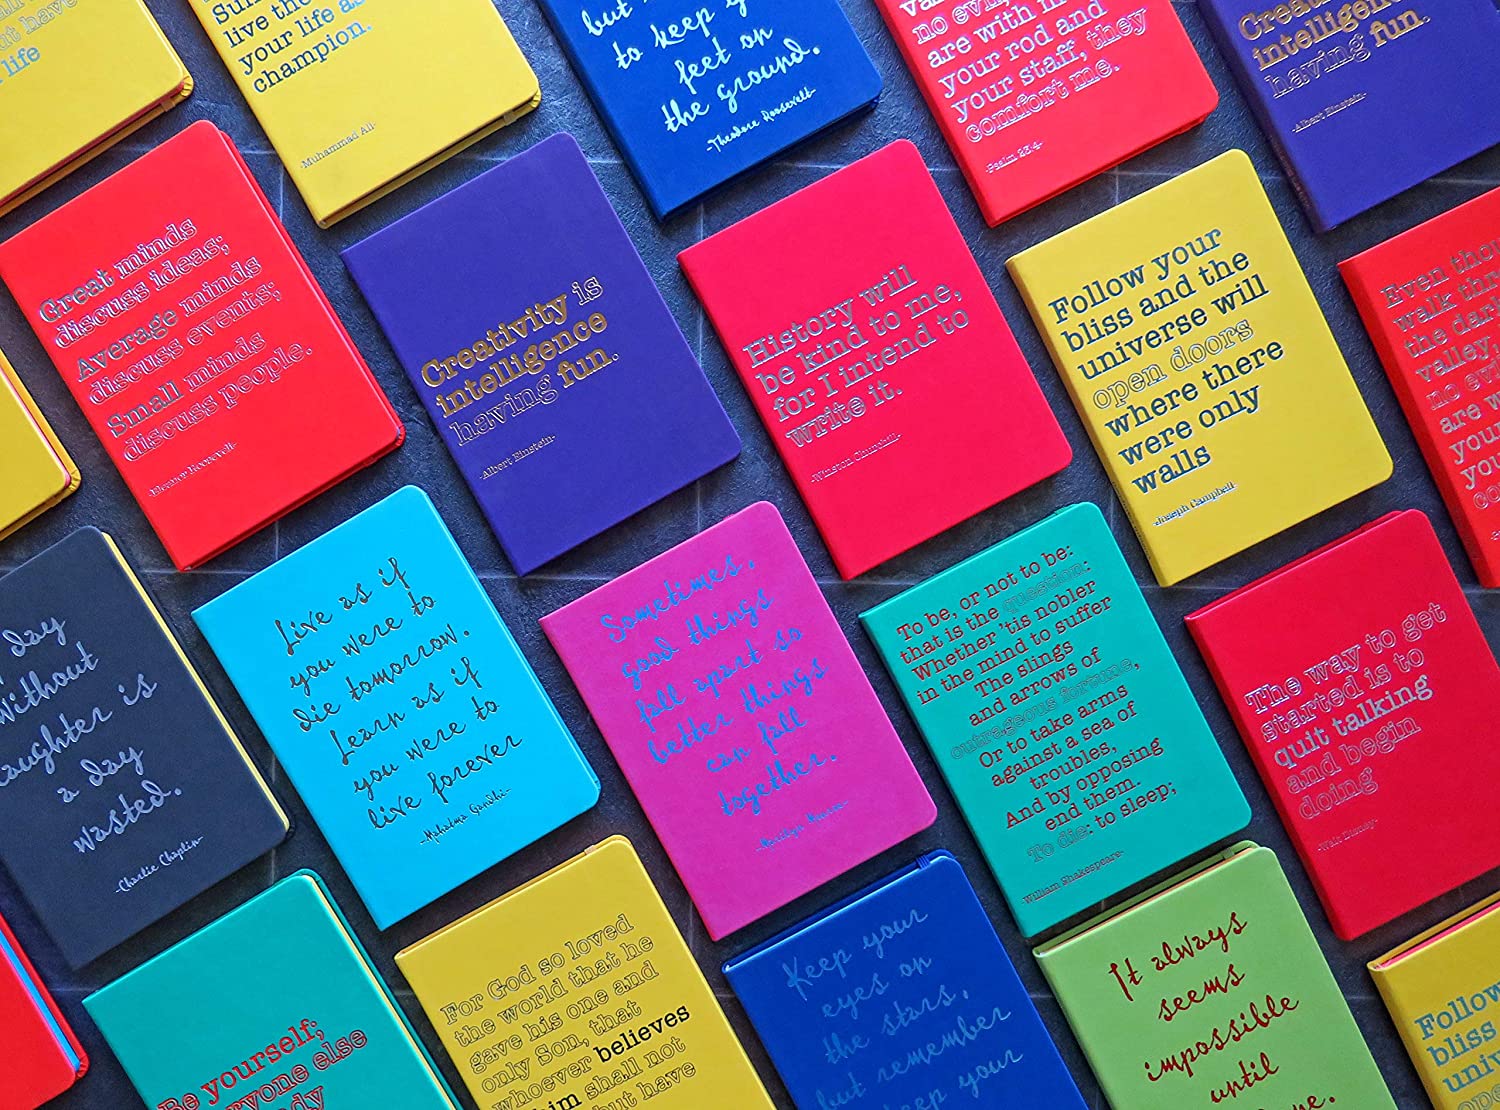 have
life
live the
your life as
champion.
-Muhammad Ali-
but
to keep
feet on
the ground.
-Theodore Roosevelt-
no evil,
are with
your rod and
your staff, they
comfort me.
-Psalm 23:4-
intelligence
having fun.
-Albert Einstein-
Great minds
discuss ideas;
Average minds
discuss events;
Small minds
discuss people.
-Eleanor Roosevelt-
Creativity is
intelligence
having fun.
-Albert Einstein-
History will
be kind to me,
for I intend to
write it.
-Winston Churchill-
Follow your
bliss and the
universe will
open doors
where there
were only
walls
-Joseph Campbell-
Even
walk
the dark
valley,
no evil
are
your
day
Without
is
a day
wasted.
-Charlie Chaplin-
Live as if
you were to
die tomorrow.
Learn as if
you were to
live forever
-Mahatma Gandhi-
Sometimes,
good things
fall apart so
better things
can fall
together.
-Marilyn Monroe-
To be, or not to be:
that is the question:
Whether 'tis nobler
in the mind to suffer
The slings
and arrows of
outrageous fortune,
Or to take arms
against a sea of
troubles,
And by opposing
end them.
To die: to sleep;
-William Shakespeare-
The way to get
started is to
quit talking
and begin
doing
-Walt Disney-
Be yourself;
else
For God so loved
the world that he
gave his one and
only Son, that
whoever believes
him shall not
but have
Keep your
eyes on
the stars,
but remember
keep your
It always
seems
impossible
until
Follow
bliss